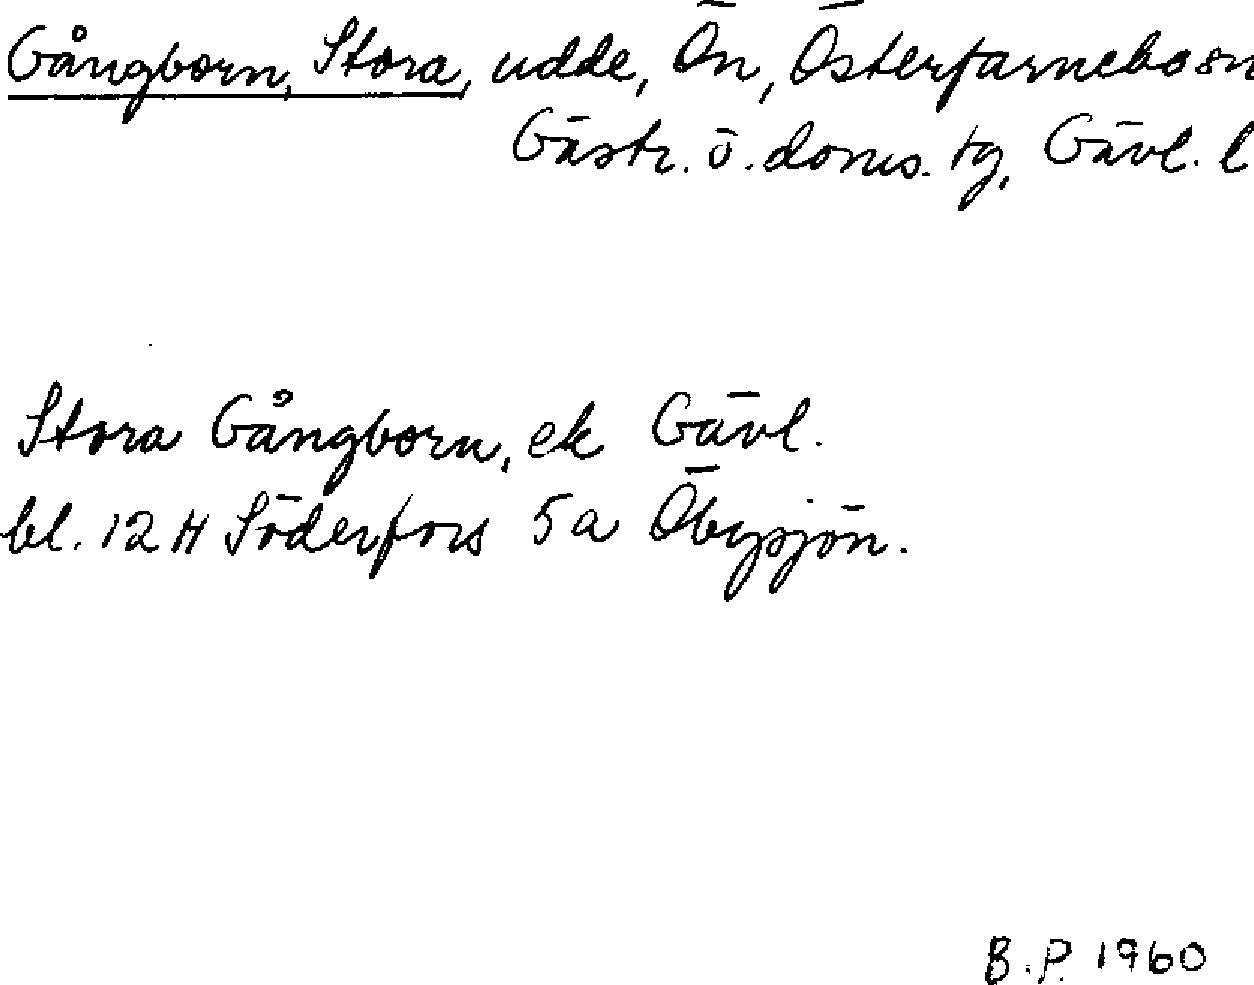 Gångborn, Stora, udde, Ön, Österfärnebo sn
Gästr. ö. doms. tg, Gävl. l
Stora Gångborn, ek Gävl.
bl. 12 H Söderfors 5 a Öbysjön.
B.P. 1960